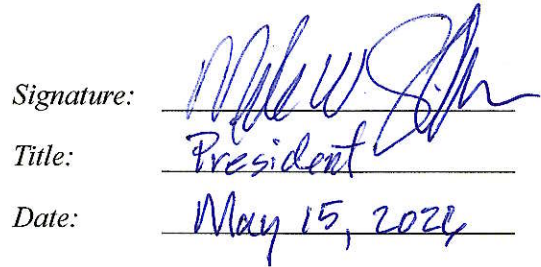 Signature:
Title: President
Date: May 15, 2026